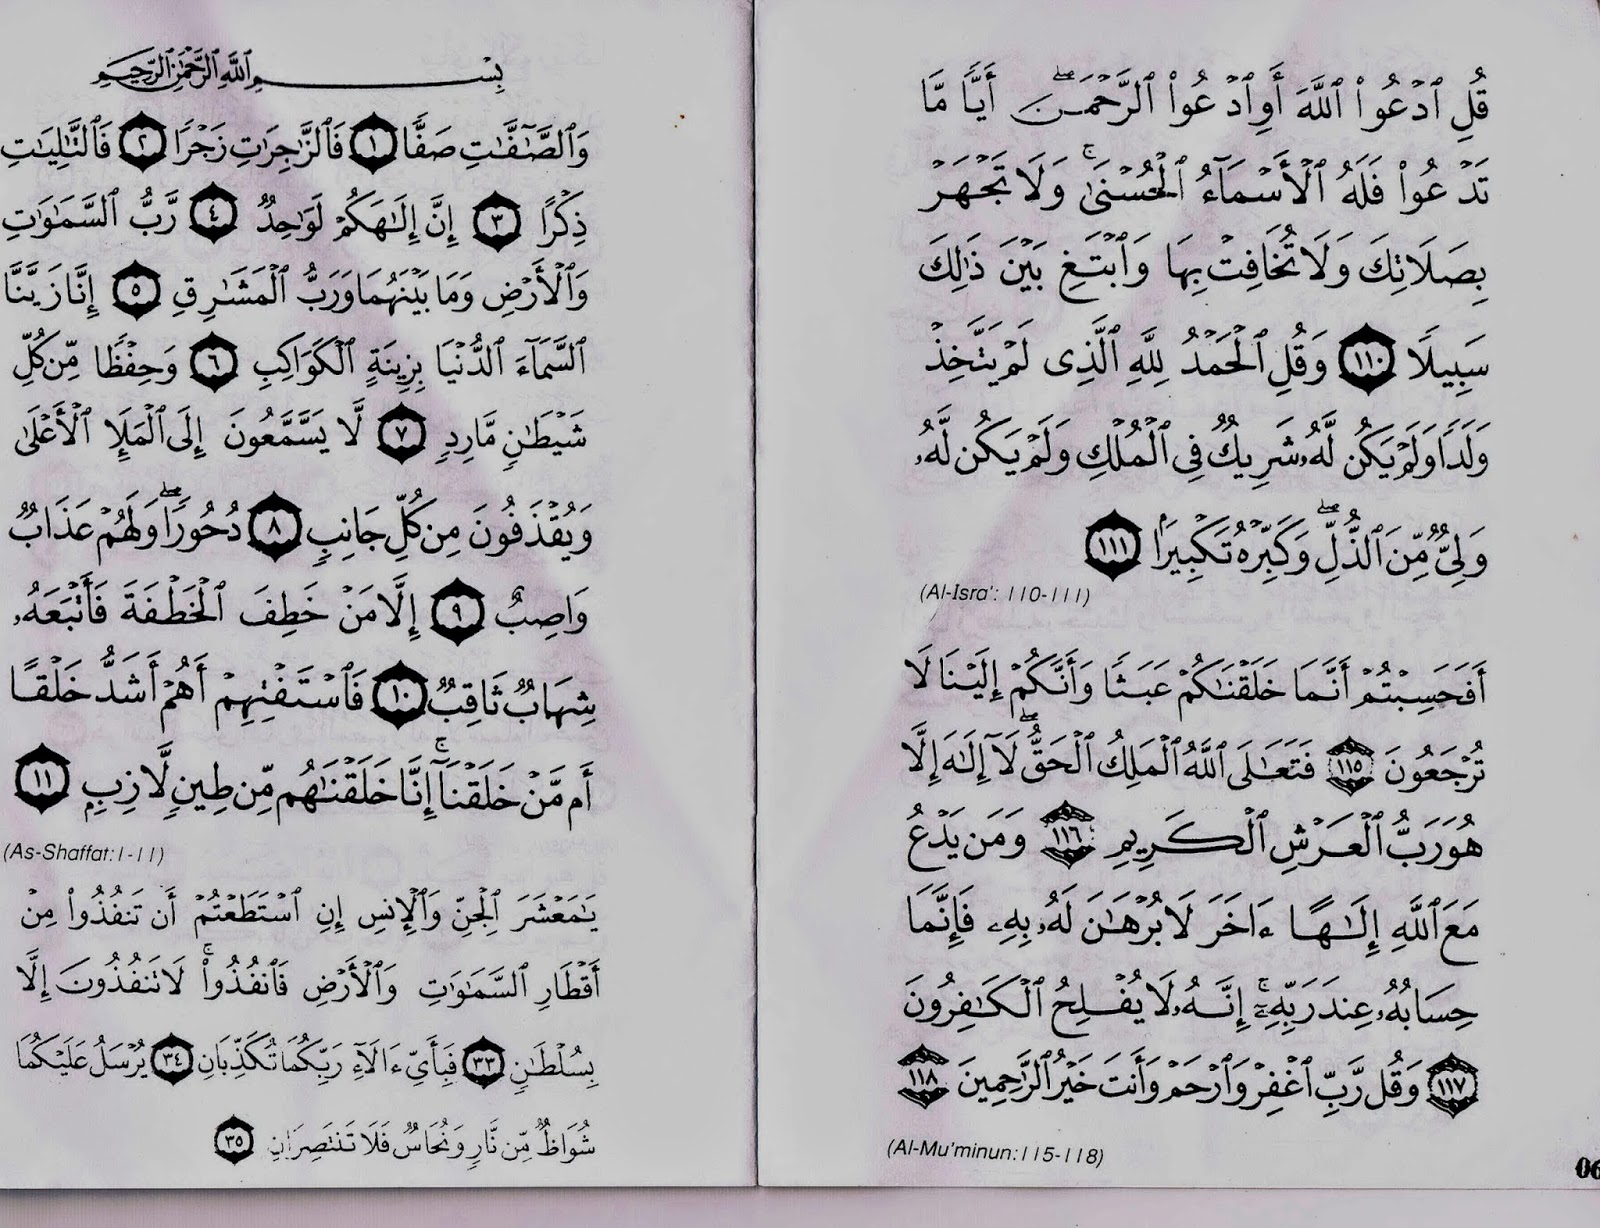 قُلِ ٱدْعُوا۟ ٱللَّهَ أَوِ ٱدْعُوا۟ ٱلرَّحْمَـٰنَ ۖ أَيًّا مَّا
تَدْعُوا۟ فَلَهُ ٱلْأَسْمَآءُ ٱلْحُسْنَىٰ ۚ وَلَا تَجْهَرْ
بِصَلَاتِكَ وَلَا تُخَافِتْ بِهَا وَٱبْتَغِ بَيْنَ ذَٰلِكَ
سَبِيلًا ١١٠ وَقُلِ ٱلْحَمْدُ لِلَّهِ ٱلَّذِى لَمْ يَتَّخِذْ
وَلَدًا وَلَمْ يَكُن لَّهُۥ شَرِيكٌ فِى ٱلْمُلْكِ وَلَمْ يَكُن لَّهُۥ
وَلِىٌّ مِّنَ ٱلذُّلِّ ۖ وَكَبِّرْهُ تَكْبِيرًۢا ١١١
(Al-Isra': 110-111)
أَفَحَسِبْتُمْ أَنَّمَا خَلَقْنَـٰكُمْ عَبَثًا وَأَنَّكُمْ إِلَيْنَا لَا
تُرْجَعُونَ ١١٥ فَتَعَـٰلَى ٱللَّهُ ٱلْمَلِكُ ٱلْحَقُّ ۖ لَآ إِلَـٰهَ إِلَّا
هُوَ رَبُّ ٱلْعَرْشِ ٱلْكَرِيمِ ١١٦ وَمَن يَدْعُ
مَعَ ٱللَّهِ إِلَـٰهًا ءَاخَرَ لَا بُرْهَـٰنَ لَهُۥ بِهِۦ فَإِنَّمَا
حِسَابُهُۥ عِندَ رَبِّهِۦٓ ۚ إِنَّهُۥ لَا يُفْلِحُ ٱلْكَـٰفِرُونَ
١١٧ وَقُل رَّبِّ ٱغْفِرْ وَٱرْحَمْ وَأَنتَ خَيْرُ ٱلرَّٰحِمِينَ ١١٨
(Al-Mu'minun:115-118)
06
بِسْمِ ٱللَّهِ ٱلرَّحْمَـٰنِ ٱلرَّحِيمِ
وَٱلصَّـٰٓفَّـٰتِ صَفًّا ١ فَٱلزَّٰجِرَٰتِ زَجْرًا ٢ فَٱلتَّـٰلِيَـٰتِ
ذِكْرًا ٣ إِنَّ إِلَـٰهَكُمْ لَوَٰحِدٌ ٤ رَّبُّ ٱلسَّمَـٰوَٰتِ
وَٱلْأَرْضِ وَمَا بَيْنَهُمَا وَرَبُّ ٱلْمَشَـٰرِقِ ٥ إِنَّا زَيَّنَّا
ٱلسَّمَآءَ ٱلدُّنْيَا بِزِينَةٍ ٱلْكَوَاكِبِ ٦ وَحِفْظًا مِّن كُلِّ
شَيْطَـٰنٍ مَّارِدٍ ٧ لَّا يَسَّمَّعُونَ إِلَى ٱلْمَلَإِ ٱلْأَعْلَىٰ
وَيُقْذَفُونَ مِن كُلِّ جَانِبٍ ٨ دُحُورًا ۖ وَلَهُمْ عَذَابٌ
وَاصِبٌ ٩ إِلَّا مَنْ خَطِفَ ٱلْخَطْفَةَ فَأَتْبَعَهُۥ
شِهَابٌ ثَاقِبٌ ١٠ فَٱسْتَفْتِهِمْ أَهُمْ أَشَدُّ خَلْقًا
أَم مَّنْ خَلَقْنَآ ۚ إِنَّا خَلَقْنَـٰهُم مِّن طِينٍ لَّازِبٍۭ ١١
(As-Shaffat:1-11)
يَـٰمَعْشَرَ ٱلْجِنِّ وَٱلْإِنسِ إِنِ ٱسْتَطَعْتُمْ أَن تَنفُذُوا۟ مِنْ
أَقْطَارِ ٱلسَّمَـٰوَٰتِ وَٱلْأَرْضِ فَٱنفُذُوا۟ ۚ لَا تَنفُذُونَ إِلَّا
بِسُلْطَـٰنٍ ٣٣ فَبِأَىِّ ءَالَآءِ رَبِّكُمَا تُكَذِّبَانِ ٣٤ يُرْسَلُ عَلَيْكُمَا
شُوَاظٌ مِّن نَّارٍ وَنُحَاسٌ فَلَا تَنتَصِرَانِ ٣٥